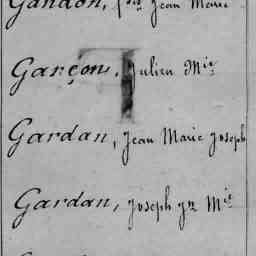 Gandon, fois Jean Marie
Garçon, Julien Mie
Gardan, Jean Marie Joseph
Gardan, Joseph Jn Mie